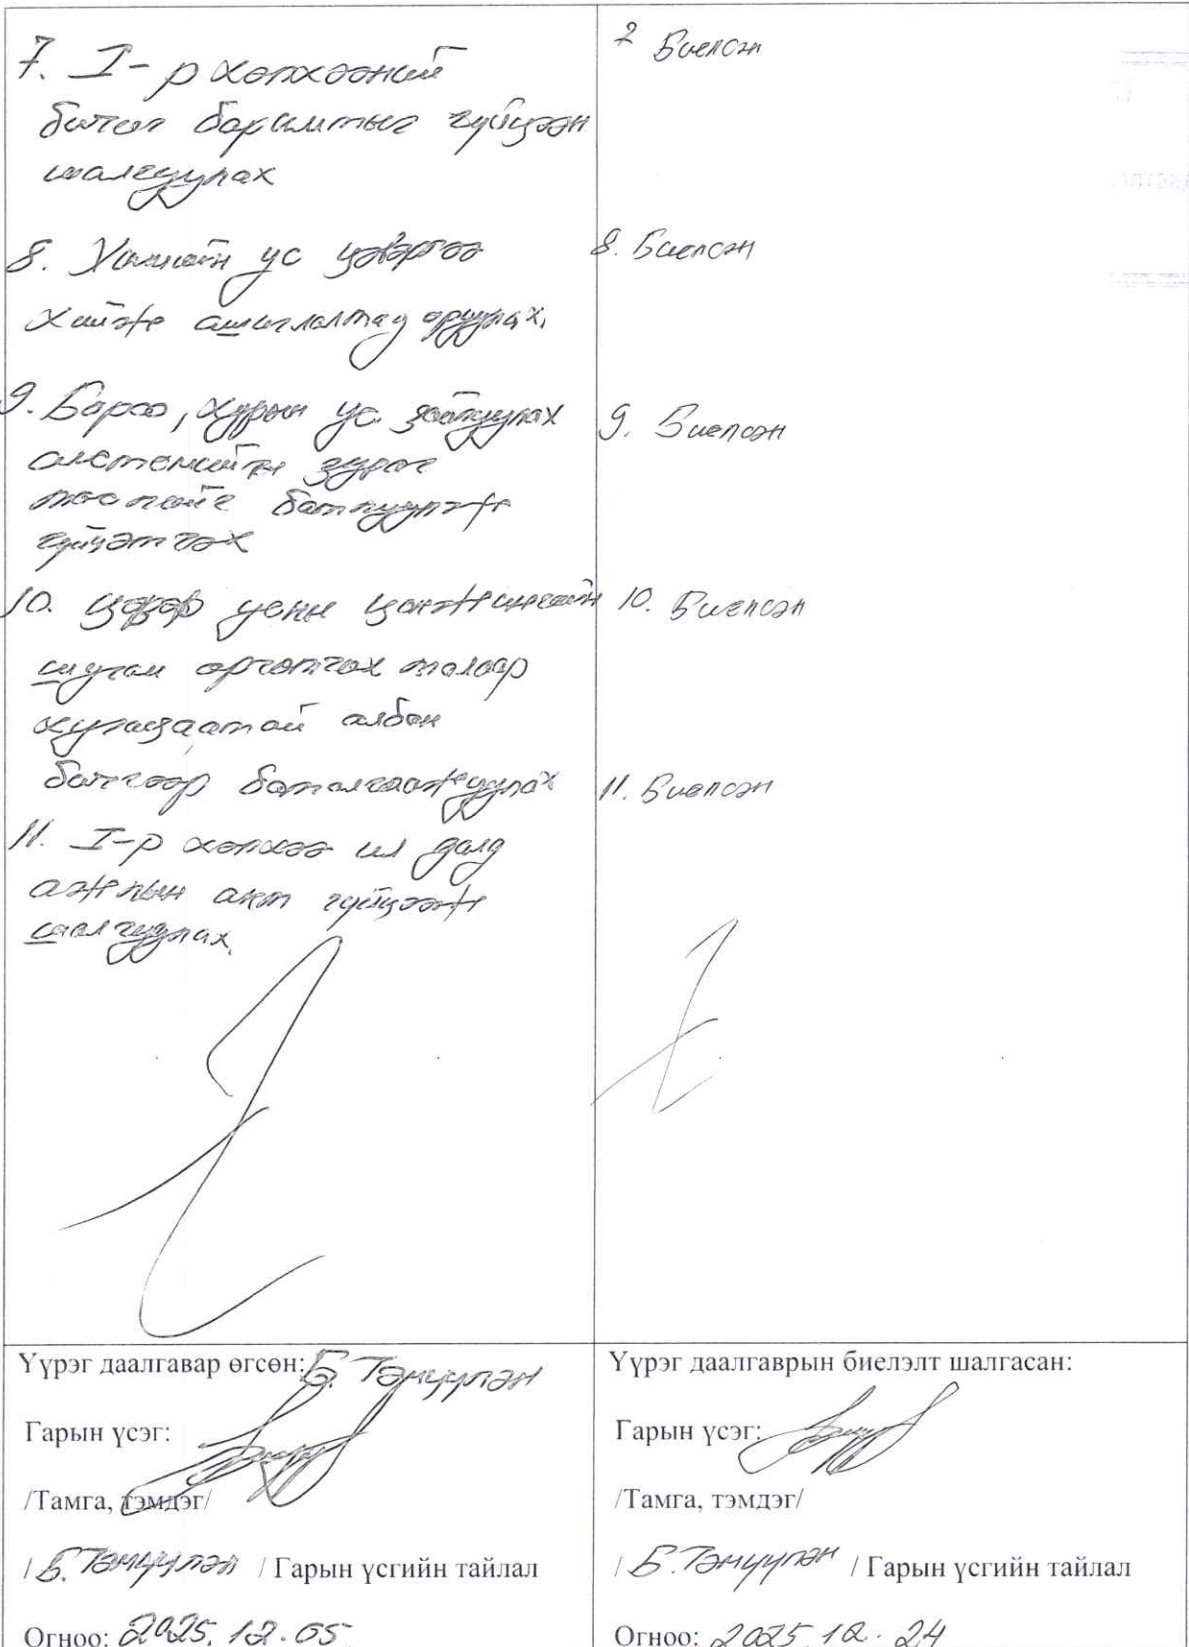 7. I-р хөгжөөний
бичиг баримтыг гүйцээн
шалгуулах
8. Хамгийн ус цэвэргээ
хийж ашиглалтад оруулах.
9. Бороо, хурын ус зайлуулах
системийн зураг
төслийг батлуулж
гүйцэтгэх
10. Цэвэр усны цанжингийн
шугам өргөтгөх талаар
хугацаатай албан
бичгээр баталгаажуулах
11. I-р ил далд
ажлын акт гүйцээж
шалгуулах.
7 Биелсэн
8. Биелсэн
9. Биелсэн
10. Биелсэн
11. Биелсэн
Үүрэг даалгавар өгсөн: Б. Тэмүүлэн
Гарын үсэг:
/Тамга, тэмдэг/
/ Б. Тэмүүлэн / Гарын үсгийн тайлал
Огноо: 2025.12.05
Үүрэг даалгаврын биелэлт шалгасан:
Гарын үсэг:
/Тамга, тэмдэг/
/ Б. Тэмүүлэн / Гарын үсгийн тайлал
Огноо: 2025.12.24